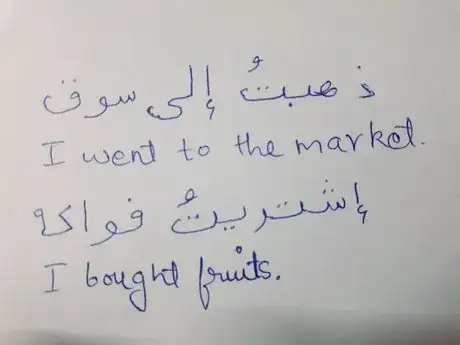 ذهبتُ إلى سوق
I went to the market.
إشتريتُ فواكه
I bought fruits.